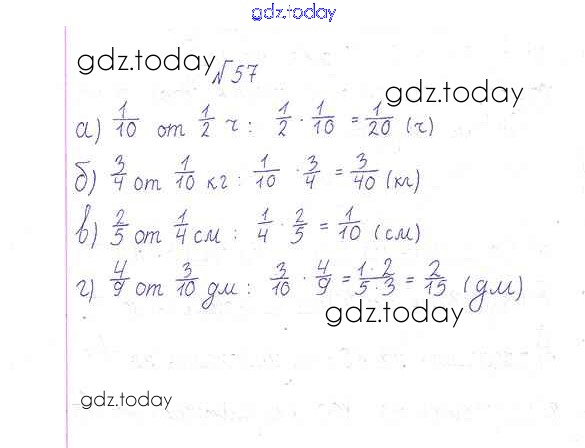 gdz.today
gdz.today
№57
gdz.today
а) 1/10 от 1/2 ч : 1/2 · 1/10 = 1/20 (ч)
б) 3/4 от 1/10 кг : 1/10 · 3/4 = 3/40 (кг)
в) 2/5 от 1/4 см : 1/4 · 2/5 = 1/10 (см)
г) 4/9 от 3/10 дм : 3/10 · 4/9 = 1·2/5·3 = 2/15 (дм)
gdz.today
gdz.today